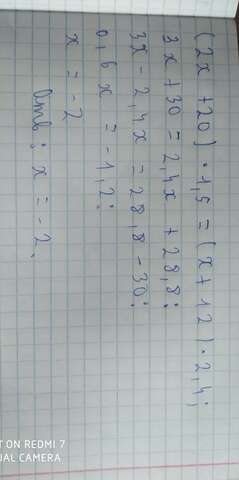 (2x + 20) · 1,5 = (x + 12) · 2,4;
3x + 30 = 2,4x + 28,8;
3x - 2,4x = 28,8 - 30;
0,6x = -1,2;
x = -2
Отв: x = -2.
ON REDMI 7
UAL CAMERA